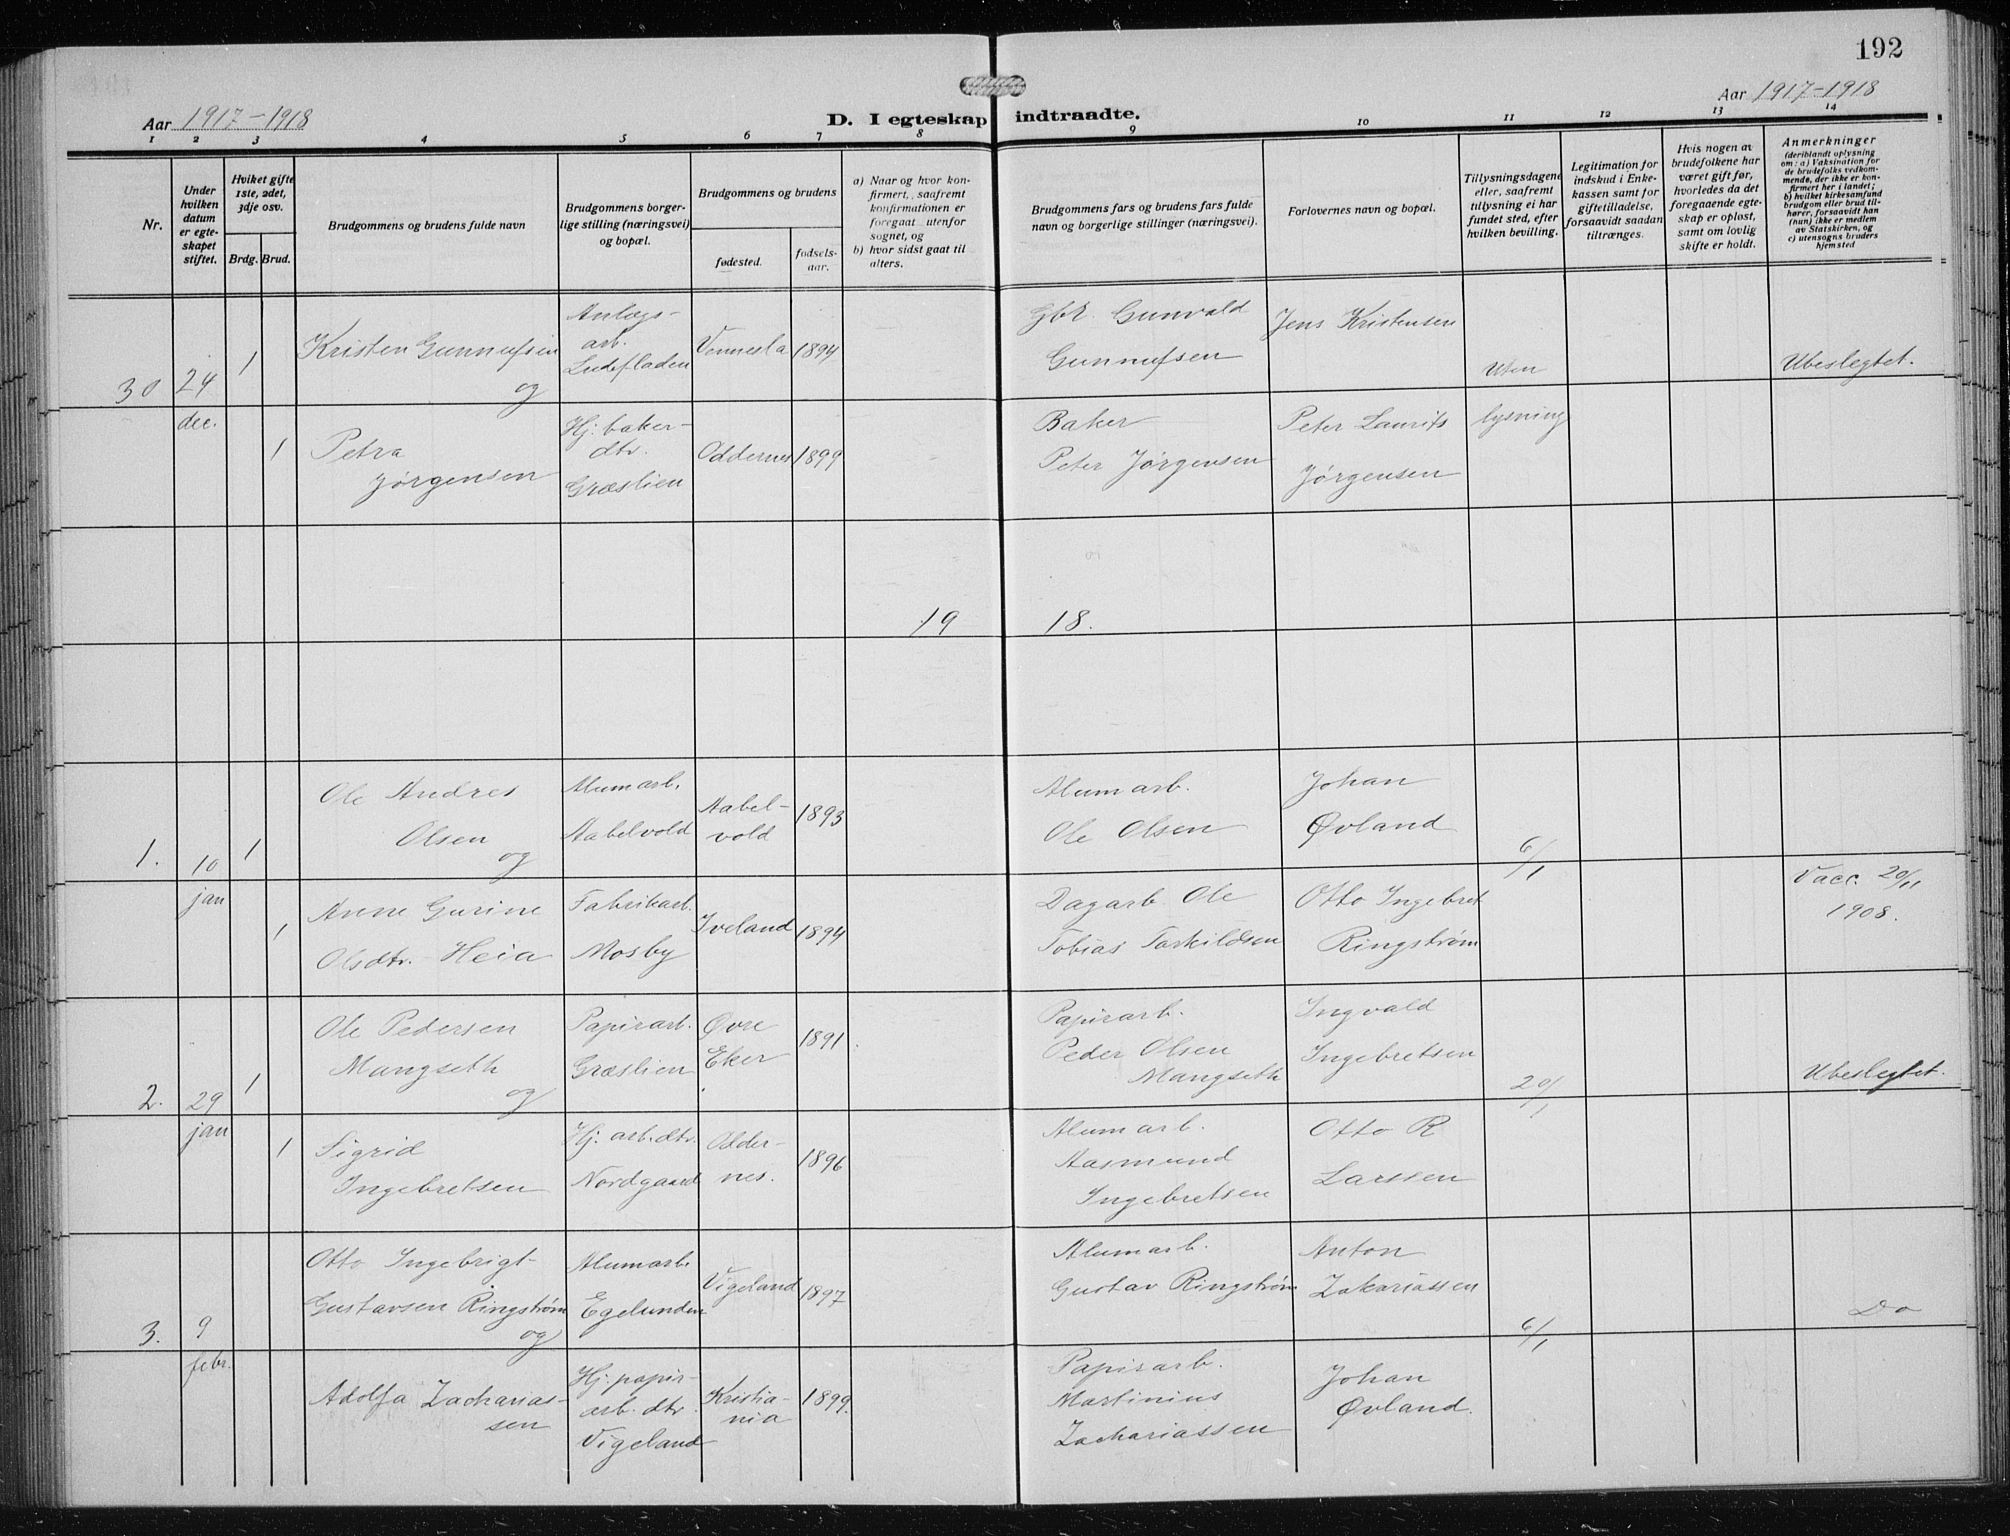 192
Aar 1917-1918
Aar 1917-1918
D. I egteskap indtraadte.
1 2 3 4 5 6 7 8 9 10 11 12 13 14
Nr.
Under hvilken datum er egte- skapet stiftet.
Hviket gifte 1ste, 2det, 3dje osv.
Brdg. Brud.
Brudgommens og brudens fulde navn
Brudgommens borger- lige stilling (næringsvei) og bopæl.
Brudgommens og brudens
fødested.
fødsels- aar.
a) Naar og hvor kon- firmert, saafremt konfirmationen er foregaat utenfor sognet, og
b) hvor sidst gaat til alters.
Brudgommens fars og brudens fars fulde navn og borgerlige stillinger (næringsvei).
Forlovernes navn og bopæl.
Tillysningsdagene eller, saafremt tillysning ei har fundet sted, efter hvilken bevilling.
Legitimation for indskud i Enke- kassen samt for giftetilladelse, forsaavidt saadan tiltrænges.
Hvis nogen av brudefolkene har været gift før, hvorledes da det foregaaende egte- skap er opløst, samt om lovlig skifte er holdt.
Anmerkninger
(deriblandt oplysning om: a) Vaksination for de brudefolks vedkom- mende, der ikke er kon- firmert her i landet; b) hvilket kirkesamfund brudgom eller brud til- hører, forsaavidt han (hun) ikke er medlem av Statskirken, og c) utensogns bruders hjemsted
30 24 dec. 1
Kristen Gunnufsen og
Anlægs- arb.
Vennesla 1894
Gbr. Gunvald Gunnufsen
Jens Kristensen
Uten
Ubeslegtet.
1
Petra Jørgensen
Hj. baker- dtr. Græslien
Oddernes 1899
Baker Peter Jørgensen
Peter Laurits Jørgensen
lysning
19 18.
1. 10 jan 1
Ole Andres Olsen og
Alumarb. Aabelvold
Aabel- vold 1893
Alumarb. Ole Olsen
Johan Øvland
6/1
Vacc. 20/11 1908.
1
Anne Gurine Olsdtr. Heia
Fabrikarb. Mosby
Iveland 1894
Dagarb. Ole Tobias Tarkildsen
Otto Ingebret Ringstrøm
2. 29 jan 1
Ole Pedersen Mangseth og
Papirarb. Græslien
Øvre Eker 1891
Papirarb. Peder Olsen Mangseth
Ingvald Ingebretsen
20/1
Ubeslegtet.
1
Sigrid Ingebretsen
Hj. arb. dtr. Nordgaard
Odder- nes. 1896
Alumarb. Aasmund Ingebretsen
Otto R Larssen
3. 9 febr.
Otto Ingebrigt Gustavsen Ringstrøm og
Alumarb. Egelunden
Vigeland 1897
Alumarb. Gustav Ringstrøm
Anton Zakariassen
6/1
Do
Adolfa Zacharias- sen
Hj. papir- arb. dtr. Vigeland
Kristia- nia 1899.
Papirarb. Martinius Zachariassen
Johan Øvland.